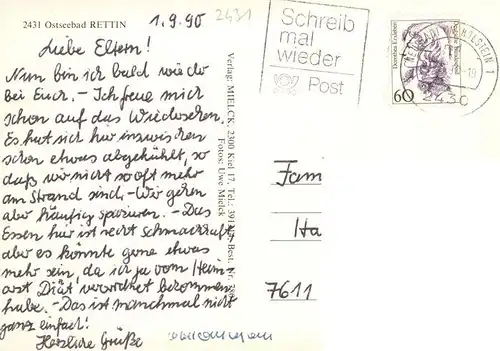 2431 Ostseebad RETTIN
1.9.90
2431
Liebe Eltern!
Nun bin ich bald wieder
bei Euch. - Ich freue mich
schon auf das Wiedersehen.
Es hat sich hier inzwischen
schon etwas abgekühlt, so
daß wir nicht so oft mehr
am Strand sind. - Wir gehen
aber häufig spazieren. - Das
Essen hier ist recht schmackhaft,
aber es könnte gerne etwas
mehr sein, da ich ja vom Heim-
arzt Diät verordnet bekommen
habe. - Das ist manchmal nicht
ganz einfach!
Herzliche Grüße
Verlag: MIELCK, 2300 Kiel 17, Tel.: 391 Best. Nr.
Fotos: Uwe Mielck
Schreib
mal
wieder
Post
Dorothea Erxleben
60
NEUSTADT HOLSTEIN 1
-19
2430
Fam
Ha
7611